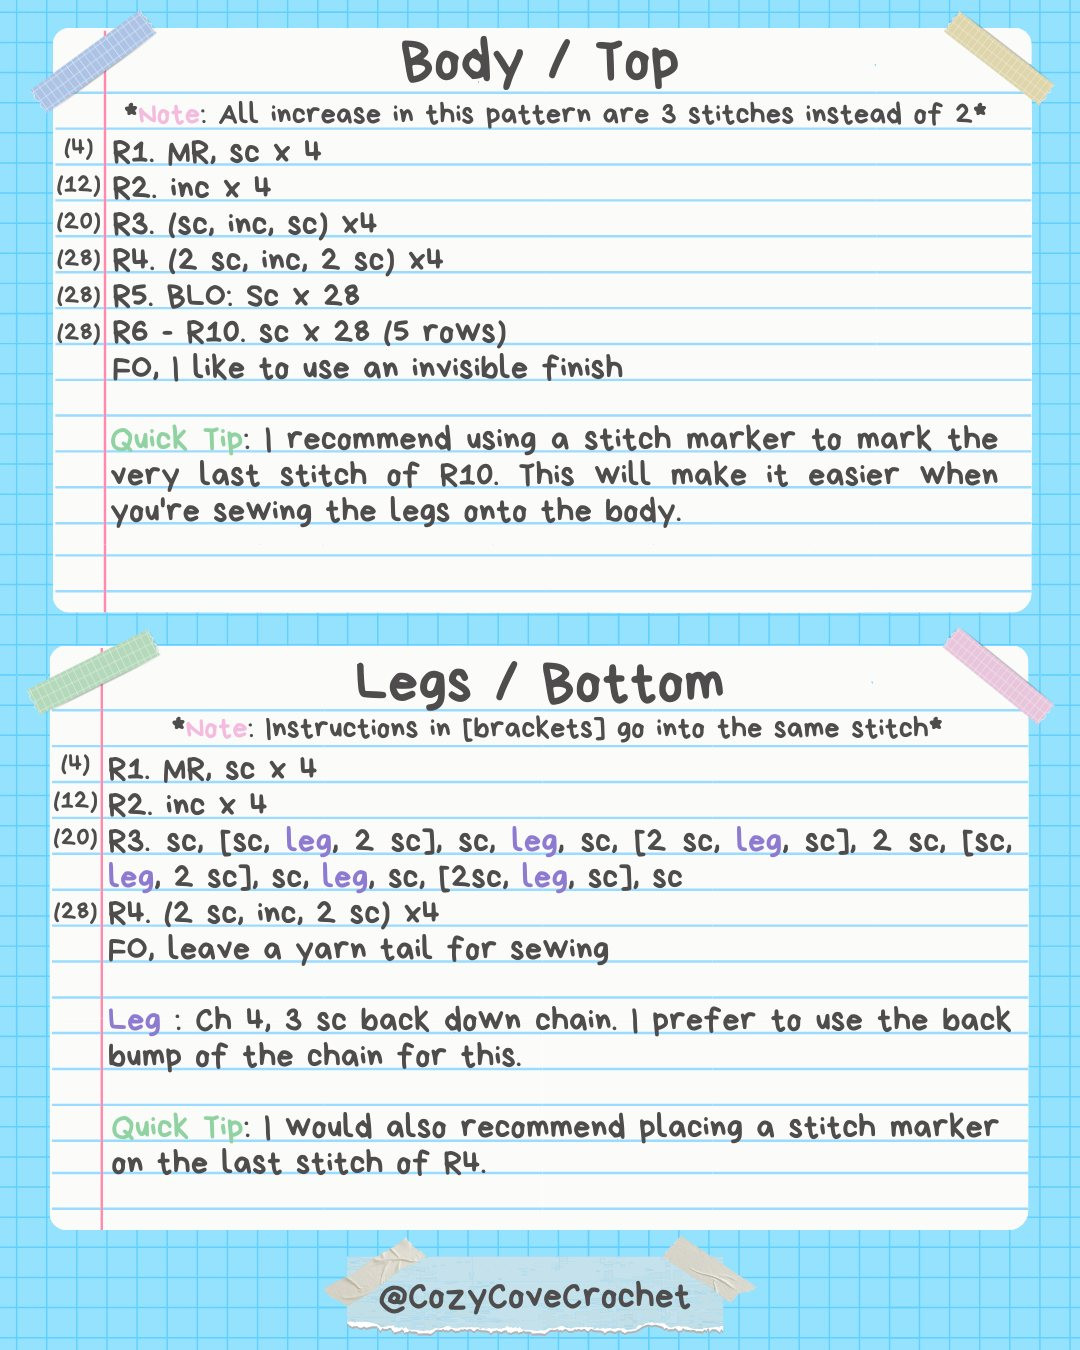 Body / Top
*Note: All increase in this pattern are 3 stitches instead of 2*
(4) R1. MR, sc x 4
(12) R2. inc x 4
(20) R3. (sc, inc, sc) x4
(28) R4. (2 sc, inc, 2 sc) x4
(28) R5. BLO: Sc x 28
(28) R6 - R10. sc x 28 (5 rows)
FO, I like to use an invisible finish
Quick Tip: I recommend using a stitch marker to mark the
very last stitch of R10. This will make it easier when
you're sewing the legs onto the body.
Legs / Bottom
*Note: Instructions in [brackets] go into the same stitch*
(4) R1. MR, sc x 4
(12) R2. inc x 4
(20) R3. sc, [sc, leg, 2 sc], sc, leg, sc, [2 sc, leg, sc], 2 sc, [sc,
leg, 2 sc], sc, leg, sc, [2sc, leg, sc], sc
(28) R4. (2 sc, inc, 2 sc) x4
FO, leave a yarn tail for sewing
Leg : Ch 4, 3 sc back down chain. I prefer to use the back
bump of the chain for this.
Quick Tip: I would also recommend placing a stitch marker
on the last stitch of R4.
@CozyCoveCrochet